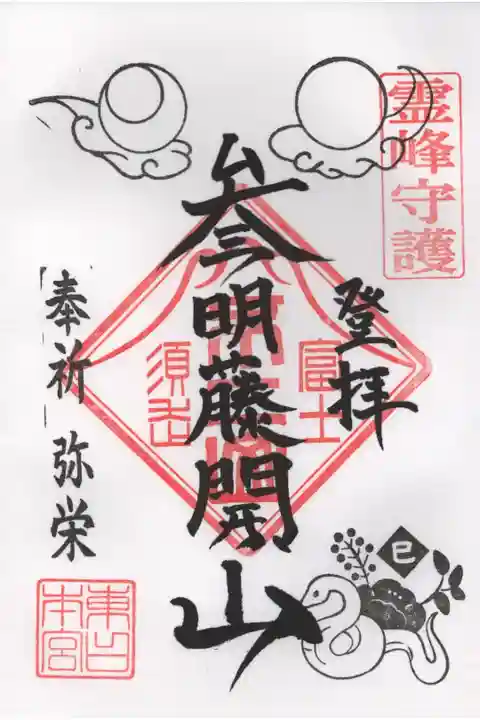 霊峰守護
登拝
富士
参明藤開山
須走
奉祈 弥栄
東口本宮
巳